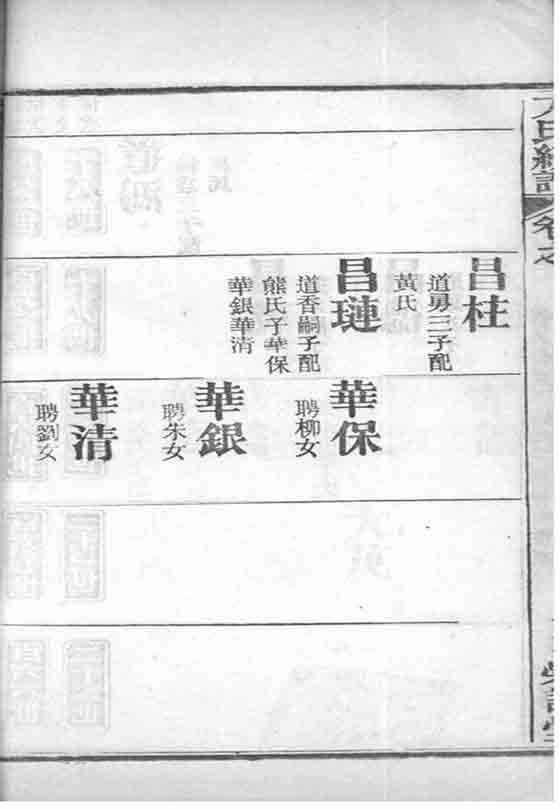 氏續譜
卷之
昌柱
道男三子配
黃氏
昌璉
道香嗣子配
熊氏子華保
華銀華清
華保
聘柳女
華銀
聘朱女
華清
聘劉女